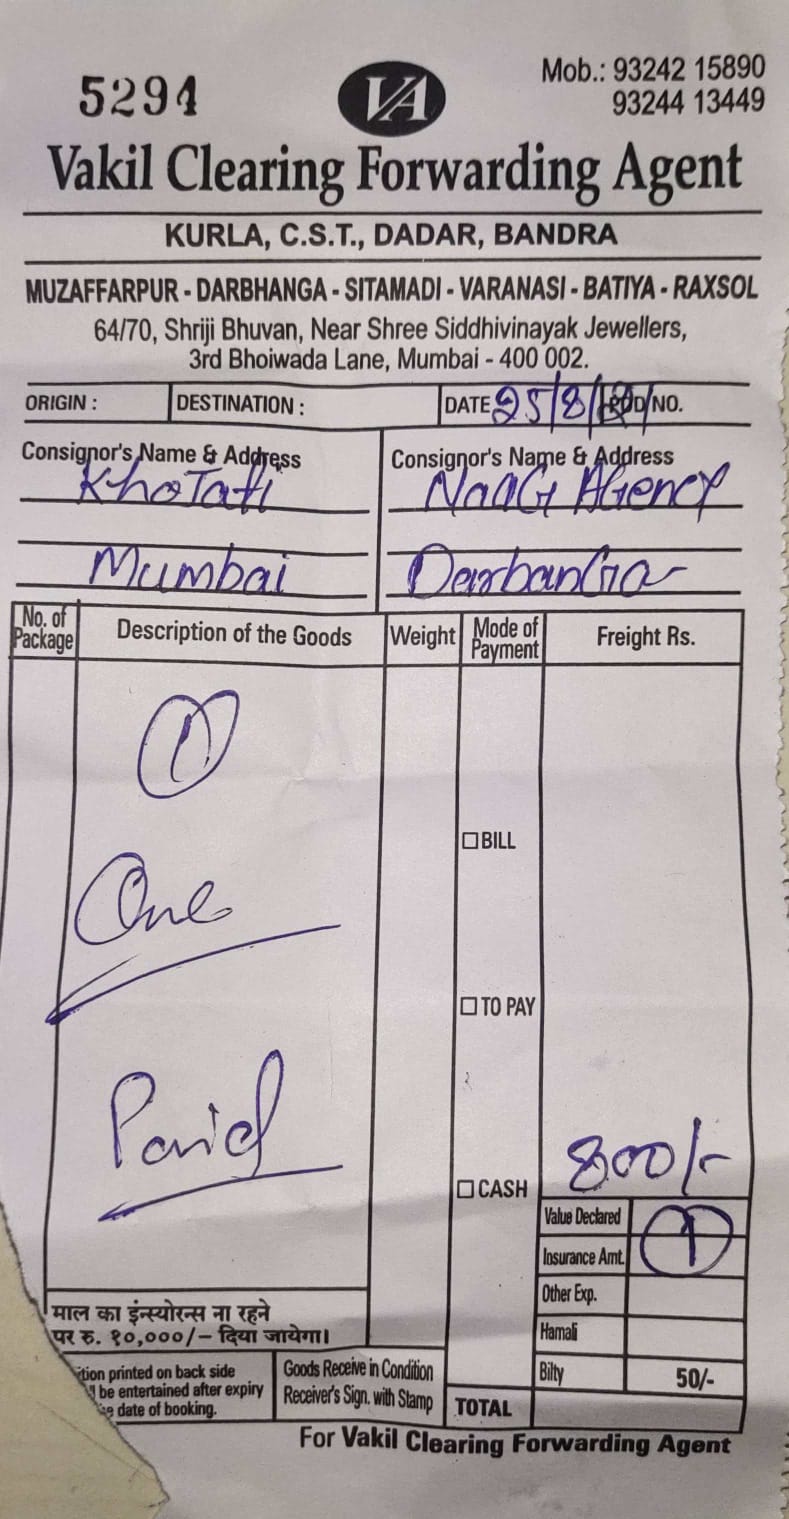 5294
VA
Mob.: 93242 15890
93244 13449
Vakil Clearing Forwarding Agent
KURLA, C.S.T., DADAR, BANDRA
MUZAFFARPUR - DARBHANGA - SITAMADI - VARANASI - BATIYA - RAXSOL
64/70, Shriji Bhuvan, Near Shree Siddhivinayak Jewellers,
3rd Bhoiwada Lane, Mumbai - 400 002.
ORIGIN : DESTINATION : DATE 25/8/ NO.
Consignor's Name & Address Consignor's Name & Address
KhoTati NaaG AGency
Mumbai DarbanGa
No. of Package Description of the Goods Weight Mode of Payment Freight Rs.
1
BILL
One
TO PAY
Paid
800/-
CASH
Value Declared 1
Insurance Amt.
Other Exp.
माल का इंन्स्योरन्स ना रहने
पर रु. १०,०००/– दिया जायेगा।
Hamali
Bilty 50/-
ition printed on back side
be entertained after expiry
date of booking.
Goods Receive in Condition
Receiver's Sign. with Stamp
TOTAL
For Vakil Clearing Forwarding Agent